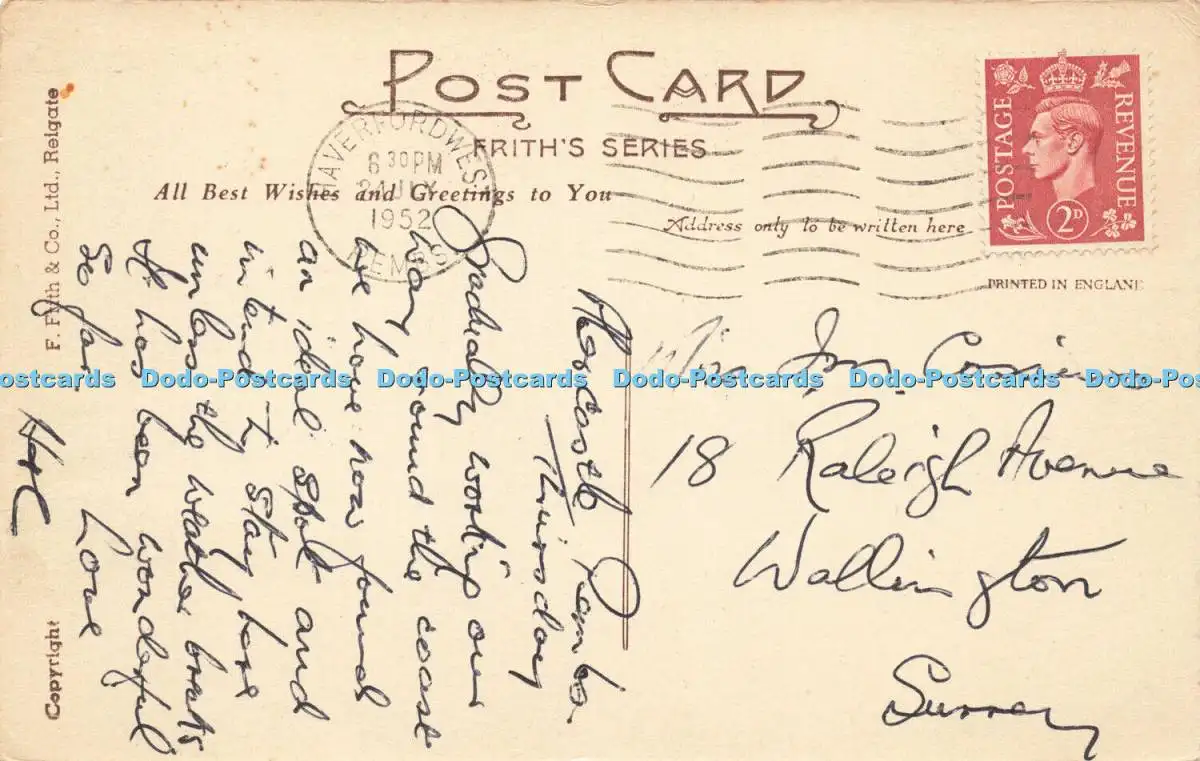 POST CARD
FRITH'S SERIES
HAVERFORDWEST
6 30 PM
1952
PEMBS
All Best Wishes and Greetings to You
Address only to be written here
POSTAGE
REVENUE
2D
PRINTED IN ENGLAND
F. Frith & Co., Ltd., Reigate
Copyright
Thursday
Gradually working our
way round the coast
we have now found
an ideal spot and
intend to stay here
unless the weather breaks
It has been wonderful
so far. Love
18 Raleigh Avenue
Wallington
Surrey
Dodo-Postcards Dodo-Postcards Dodo-Postcards Dodo-Postcards